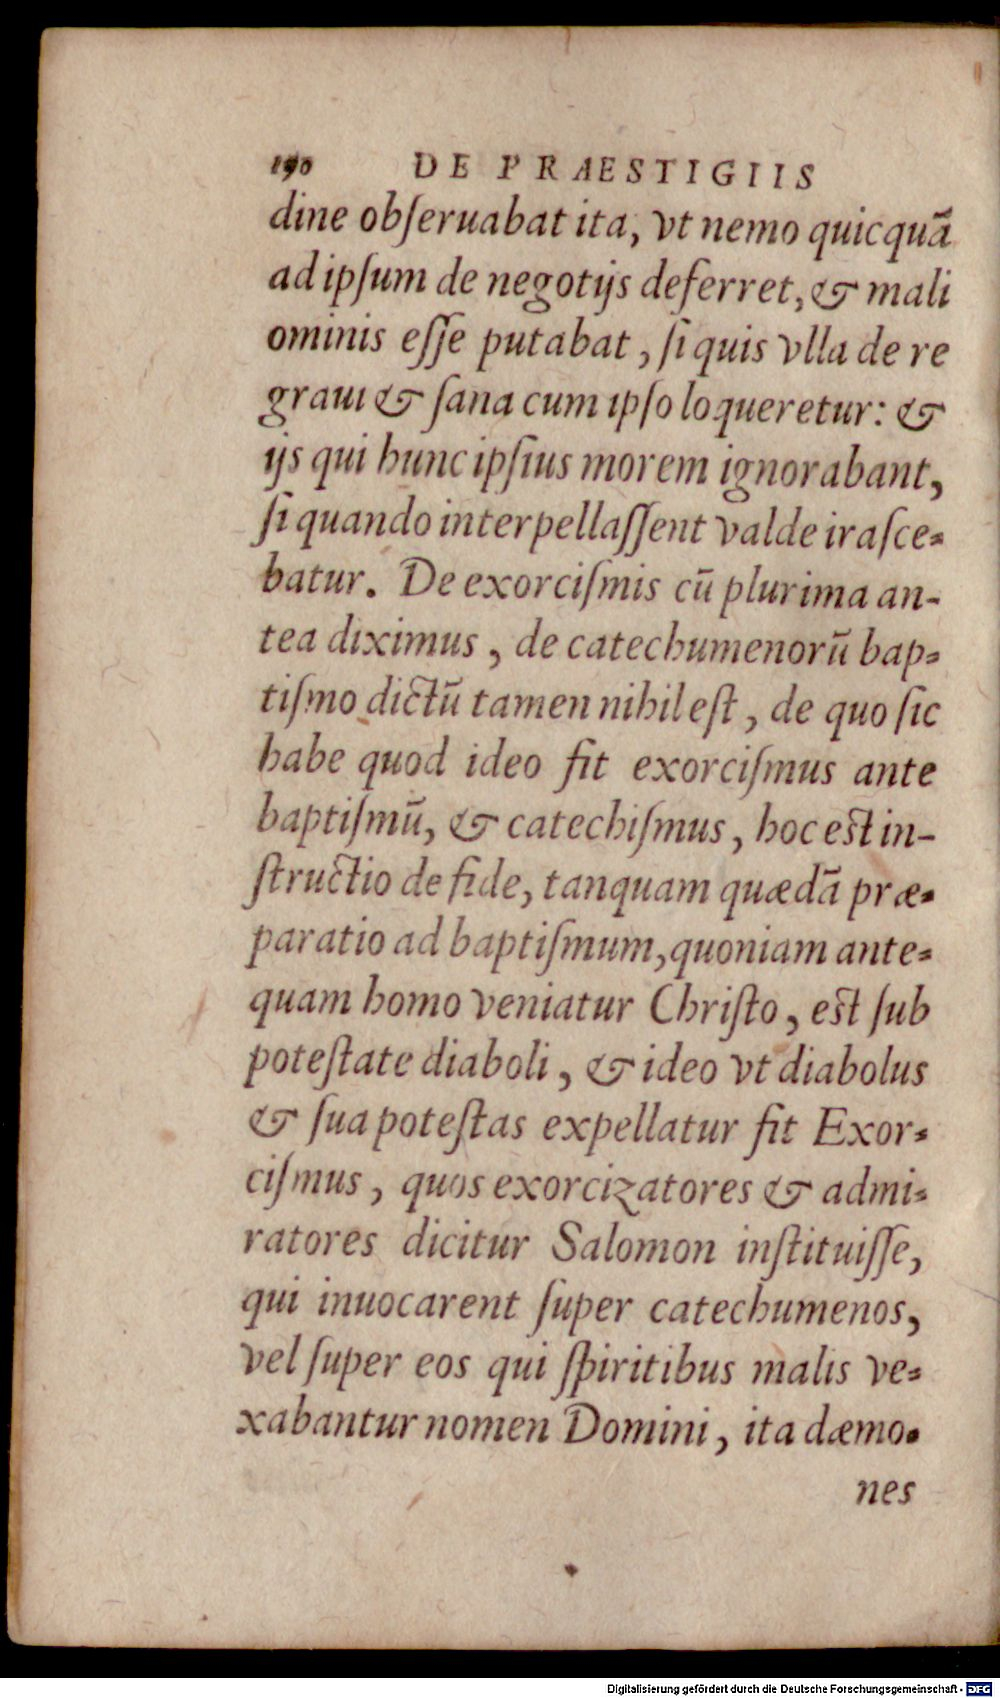 190 DE PRAESTIGIIS
dine obſeruabat ita, vt nemo quicquã
ad ipſum de negotijs deferret, & mali
ominis eſſe putabat, ſi quis vlla de re
graui & ſana cum ipſo loqueretur: &
ijs qui hunc ipſius morem ignorabant,
ſi quando interpellaſſent valde iraſce-
batur. De exorciſmis cũ plurima an-
tea diximus, de catechumenorũ bap-
tiſmo dictũ tamen nihil eſt, de quo ſic
habe quod ideo fit exorciſmus ante
baptiſmũ, & catechiſmus, hoc eſt in-
ſtructio de fide, tanquam quædã præ-
paratio ad baptiſmum, quoniam ante-
quam homo veniatur Chriſto, eſt ſub
poteſtate diaboli, & ideo vt diabolus
& ſua poteſtas expellatur fit Exor-
ciſmus, quos exorcizatores & admi-
ratores dicitur Salomon inſtituiſſe,
qui inuocarent ſuper catechumenos,
vel ſuper eos qui ſpiritibus malis ve-
xabantur nomen Domini, ita dæmo-
nes
Digitalisierung gefördert durch die Deutsche Forschungsgemeinschaft - DFG